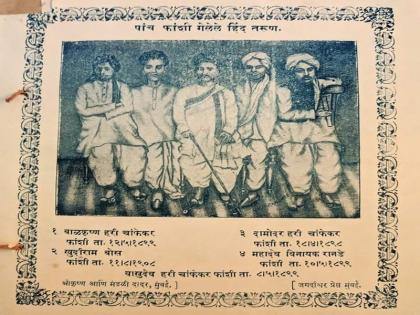 पांच फांशी गेलेले हिंद तरूण.
१ बाळकृष्ण हरी चांफेकर
फांशी ता. १२।५।१८९९
२ खुदीराम बोस
फांशी ता. ११।८।१९०८
३ दामोदर हरी चांफेकर
फांशी ता. १८।४।१८९८
४ महादेव विनायक रानडे
फांशी ता. १०।५।१८९९
वासुदेव हरी चांफेकर फांशी ता. ८।५।१८९९
श्रीकृष्ण आणि मंडळी दादर, मुंबई. ]
[ जगदीश्वर प्रेस मुंबई.